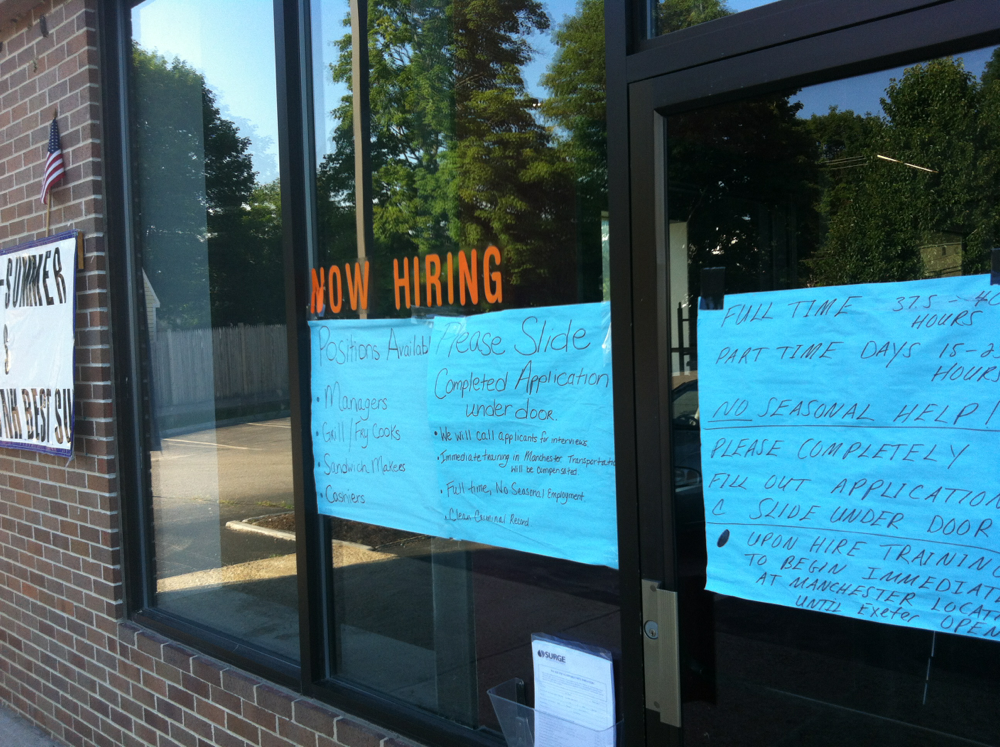 SUMMER
&
NH BEST SU
NOW HIRING
Positions Availabl
• Managers
• Grill / Fry Cooks
• Sandwich Makers
• Cashiers
Please Slide
Completed Application
under door.
• We will call applicants for interviews
• Immediate training in Manchester Transportation
will be compensated
• Full time, No Seasonal Employment.
• Clean Criminal Record
SURGE
FULL TIME 37.5 - 40
HOURS
PART TIME DAYS 15-2
HOURS
NO SEASONAL HELP!
PLEASE COMPLETELY
FILL OUT APPLICATION
& SLIDE UNDER DOOR
• UPON HIRE TRAINING
TO BEGIN IMMEDIAT
AT MANCHESTER LOCAT
UNTIL Exeter OPEN